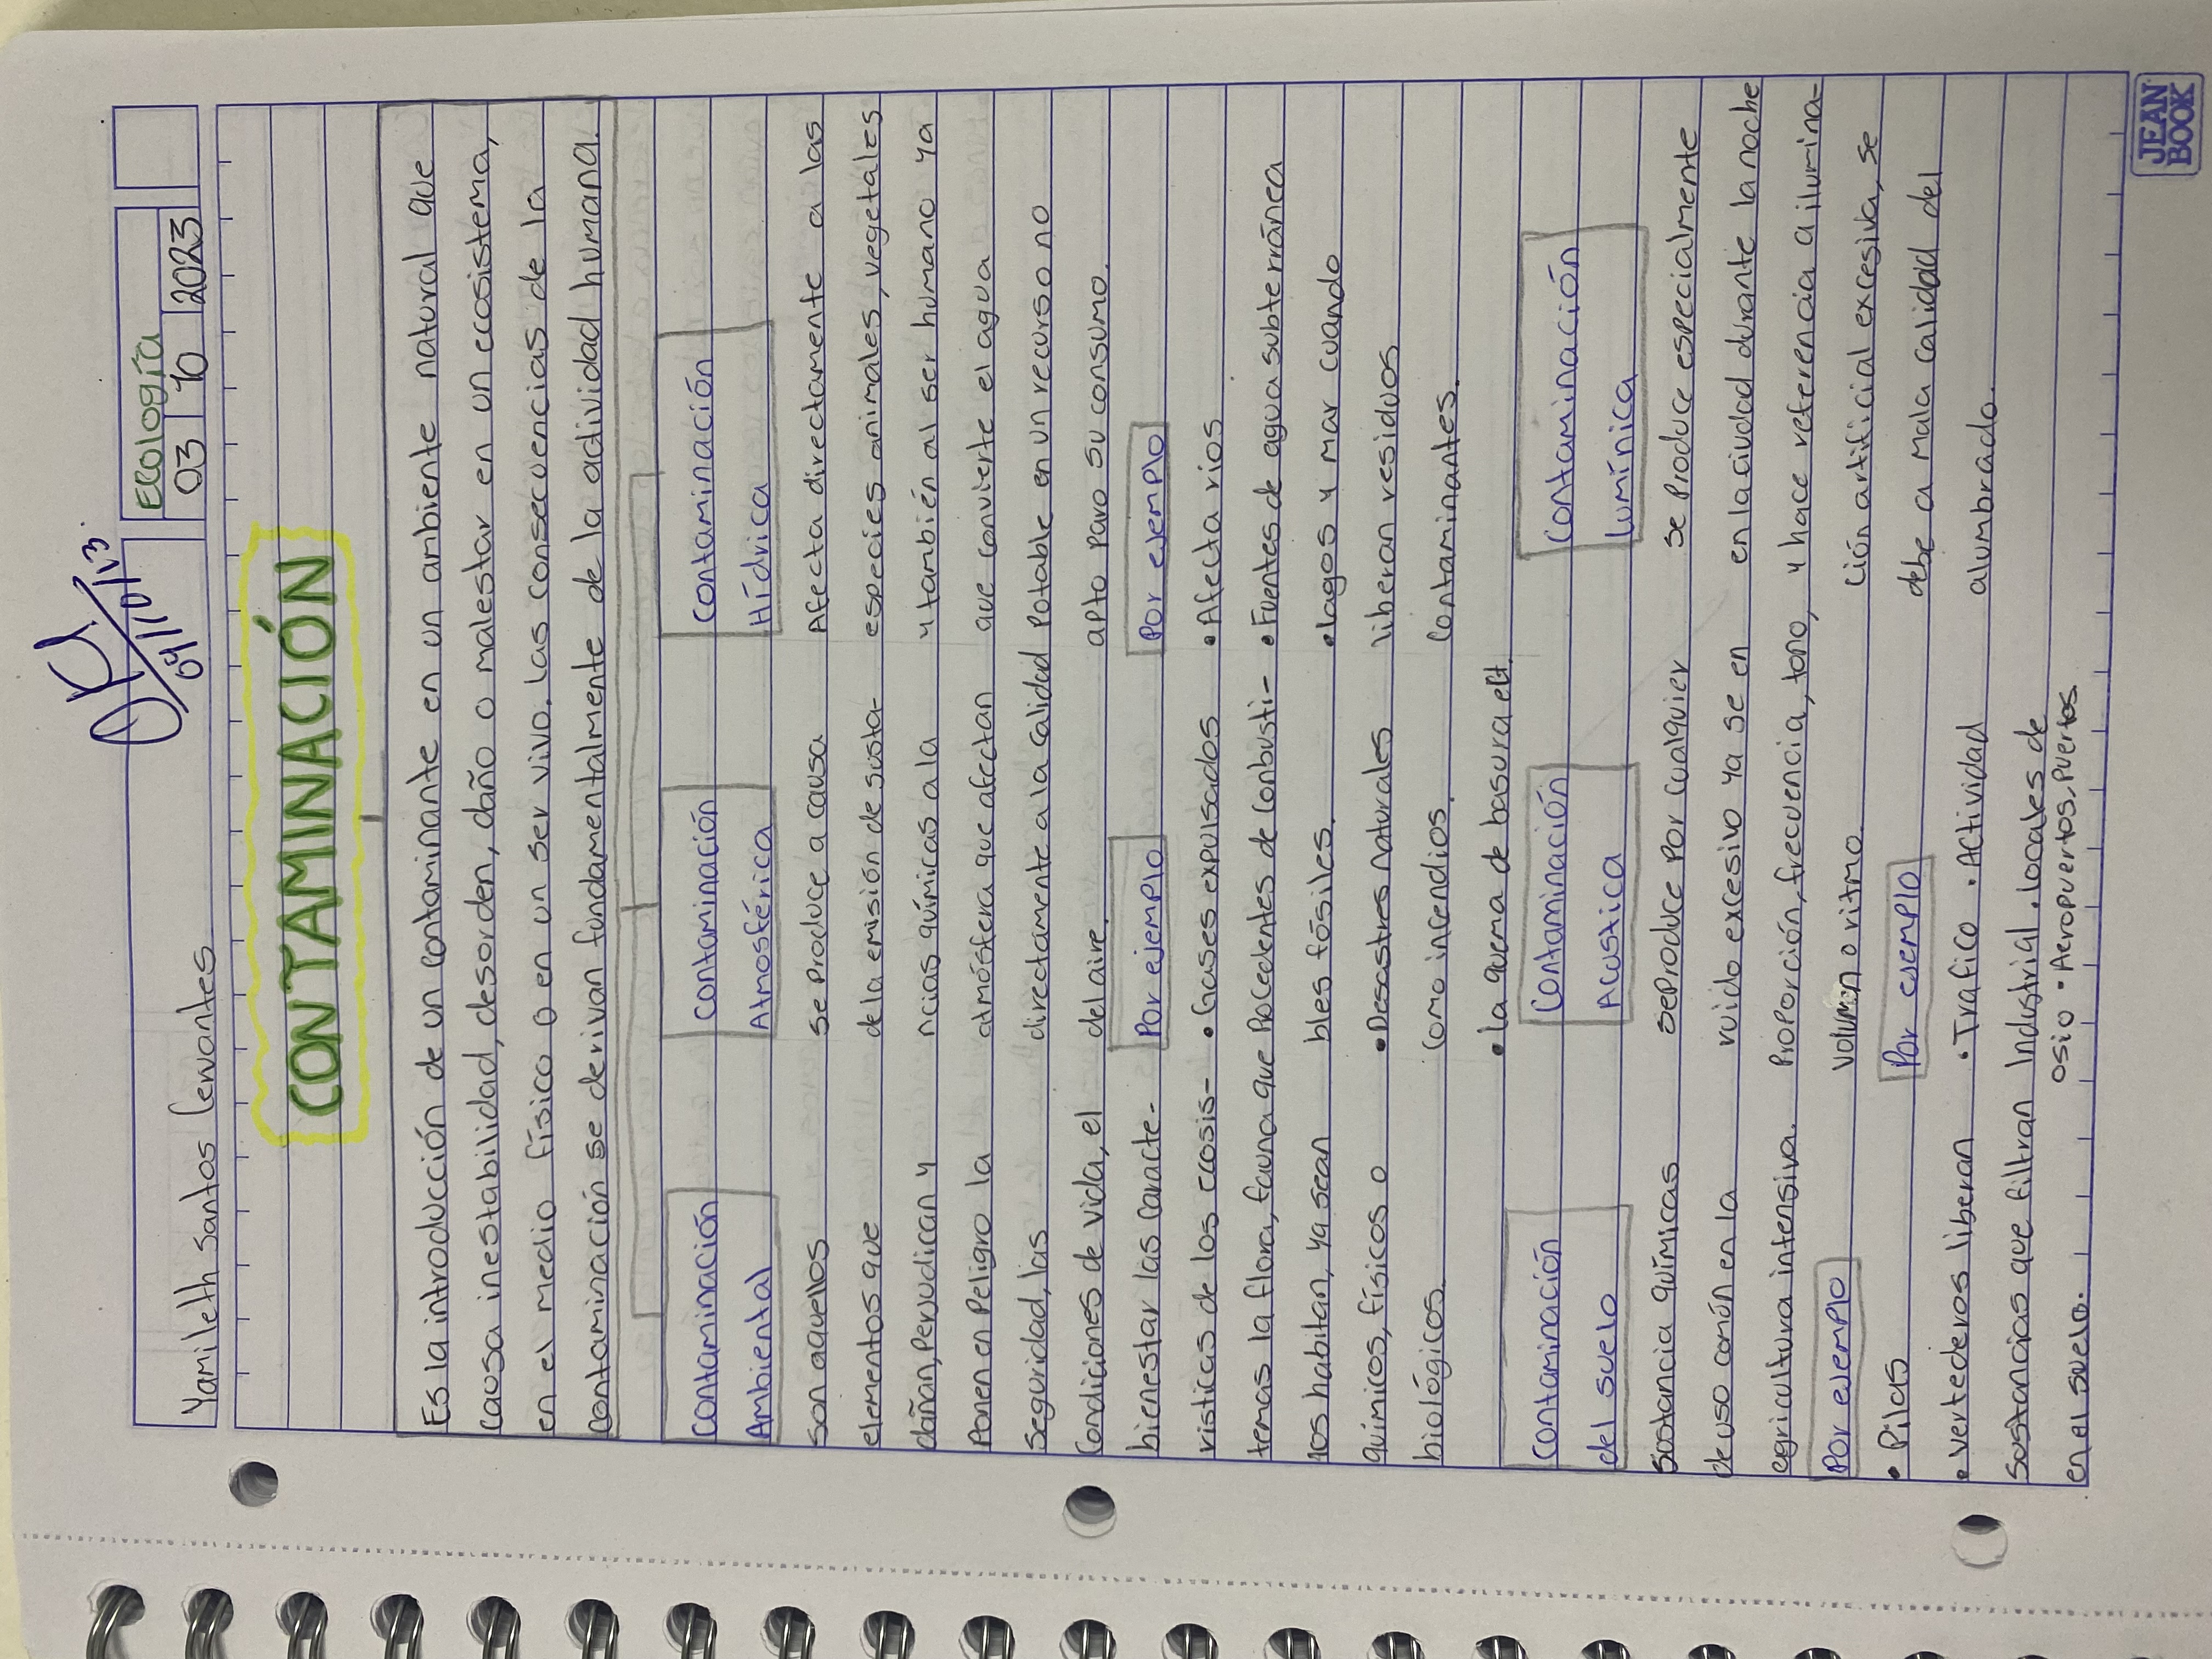 OK
04/10/23
Yamileth Santos Cervantes
Ecología
03 10 2023
CONTAMINACIÓN
Es la introducción de un contaminante en un ambiente natural que
causa inestabilidad, desorden, daño o malestar en un ecosistema,
en el medio físico o en un ser vivo. Las consecuencias de la
contaminación se derivan fundamentalmente de la actividad humana.
Contaminación
Ambiental
son aquellos
elementos que
dañan, Perjudican y
Ponen en Peligro la
seguridad, las
Condiciones de vida, el
bienestar las caracte-
risticas de los ecosis-
temas la flora, fauna que
nos habitan, ya sean
químicos, físicos o
biológicos.
Contaminación
Atmosférica
se Produce a causa
de la emisión de susta-
ncias químicas a la
atmósfera que afectan
directamente a la calidad
del aire.
Por ejemplo
• Gases expulsados
Procedentes de Conbusti-
bles fósiles.
• Desastres naturales
Como incendios.
• la quema de basura
Contaminación
Hídrica
Afecta directamente a las
especies animales, vegetales
y también al ser humano ya
que convierte el agua
Potable en un recurso no
apto para su consumo.
Por ejemplo
• Afecta rios
• Fuentes de agua subterránea
• lagos y mar cuando
liberan residuos
Contaminantes.
Contaminación
del suelo
Sustancia químicas
de uso común en la
agricultura intensiva.
Por ejemplo
• Pilas
• vertederos liberan
sustancias que filtran
en el suelo.
Contaminación
Acustica
se Produce Por cualquier
ruido excesivo ya se en
Proporción, frecuencia, tono,
Volumen o ritmo.
Por ejemplo
• Trafico • Actividad
Industrial • locales de
osio • Aeropuertos, Puertos
Contaminación
Lumínica
se Produce especialmente
en la ciudad durante la noche
y hace referencia a ilumina-
ción artificial excesiva, se
debe a mala calidad del
alumbrado.
JEAN
BOOK